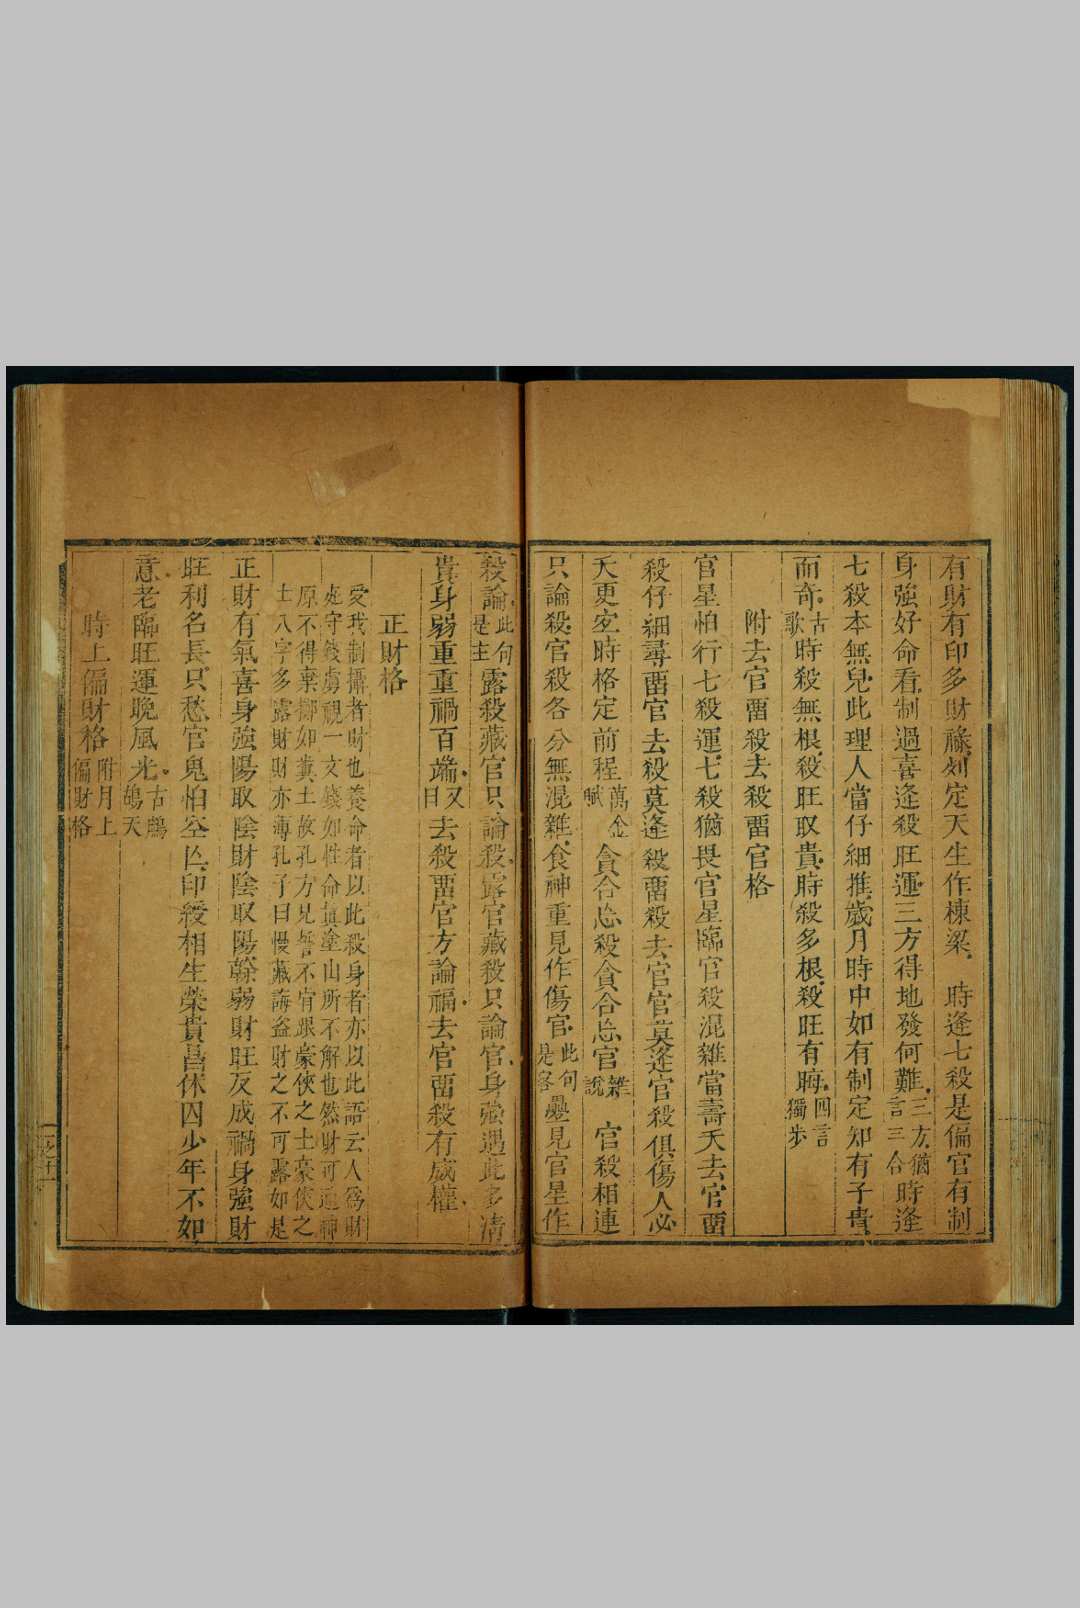 有財有印多財祿刻定天生作棟梁 時逢七殺是偏官有制
身強好命看制過喜逢殺旺運三方得地發何難三方猶言三合時逢
七殺本無兒此理人當仔細推歲月時中如有制定知有子貴
而奇古歌時殺無根殺旺取貴時殺多根殺旺有晦四言獨步
附去官畱殺去殺畱官格
官星怕行七殺運七殺猶畏官星臨官殺混雜當壽夭去官畱
殺仔細尋畱官去殺莫逢殺畱殺去官官莫逢官殺俱傷人必
夭更宐時格定前程萬金賦貪合忘殺貪合忘官雜說 官殺相連
只論殺官殺各分無混雜食神重見作傷官此句是客疊見官星作
殺論此句是主露殺藏官只論殺露官藏殺只論官身強遇此多清
貴身弱重重禍百端又曰去殺畱官方論福去官畱殺有威權
正財格
愛我制攝者財也養命者以此殺身者亦以此語云人爲財
處守錢虜視一文錢如性命填塗山所不解也然財可通神
原不得棄擲如糞土故孔方兄誓不肯跟豪俠之士豪俠之
士八字多露財財亦薄孔子曰慢藏誨盜財之不可露如是
正財有氣喜身強陽取陰財陰取陽榦弱財旺反成禍身強財
旺利名長只愁官鬼怕空亡印綬相生榮貴昌休囚少年不如
意老臨旺運晚風光古鷓鴣天
時上偏財格附月上偏財格